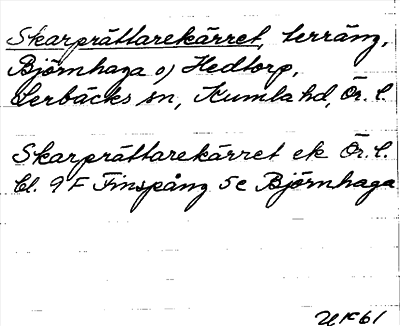 Skarprättarekärret, terräng,
Björnhaga o) Hedtorp,
Lerbäcks sn, Kumla hd, Ör. l.
Skarprättarekärret ek Ör. l.
bl. 9 F Finspång 5c Björnhaga